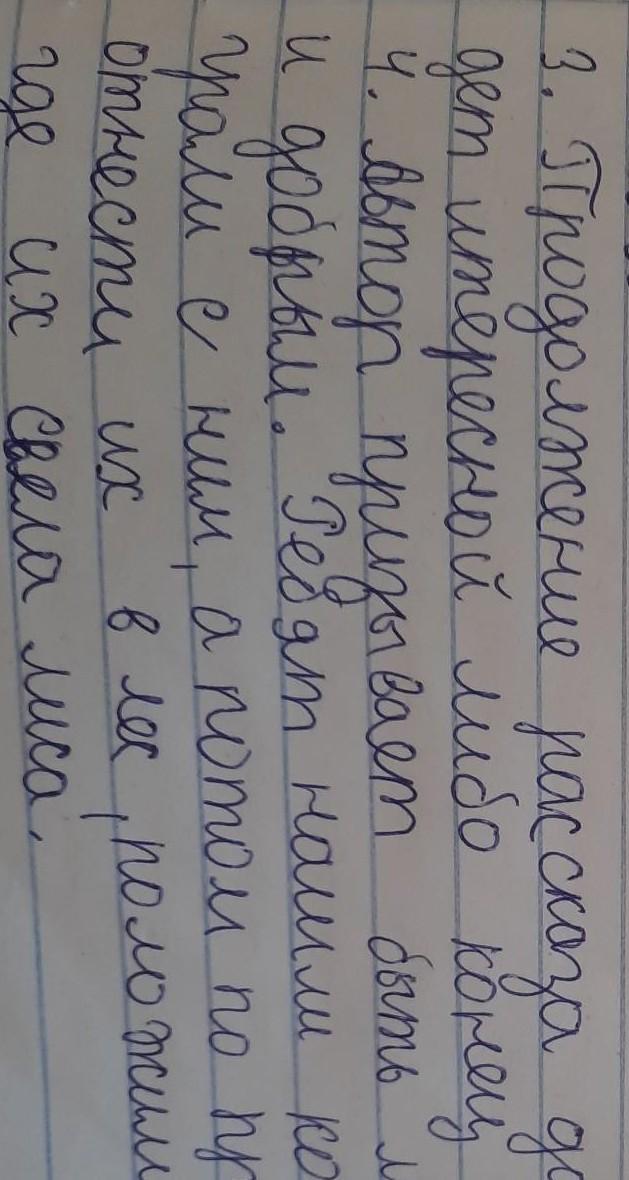 3. Продолжение рассказа до
дет итересной либо конец
4. Автор призывает быть
и добрым. Ребят нашли ко
грали с ним, а потом по пр
отнести их в лес, положили
где их съела лиса.